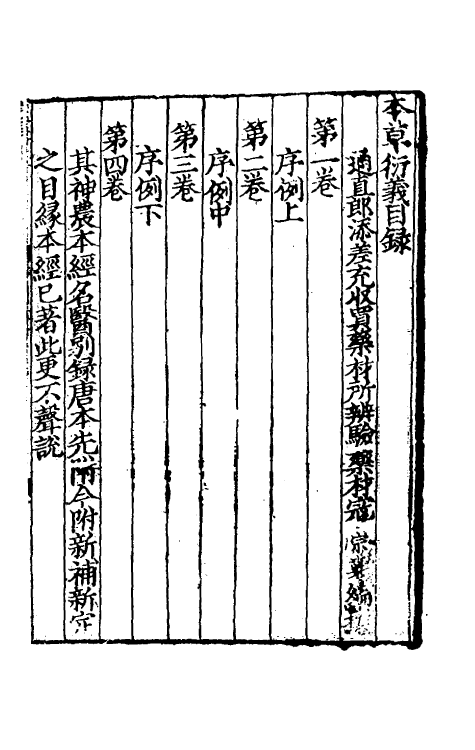 本草衍義目録
通直郎添差充收買藥材所辨驗藥材寇宗奭編撰
第一卷
序例上
第二卷
序例中
第三卷
序例下
第四卷
其神農本經名醫別録唐本先附今附新補新定
之目縁本經已著此更不聲說